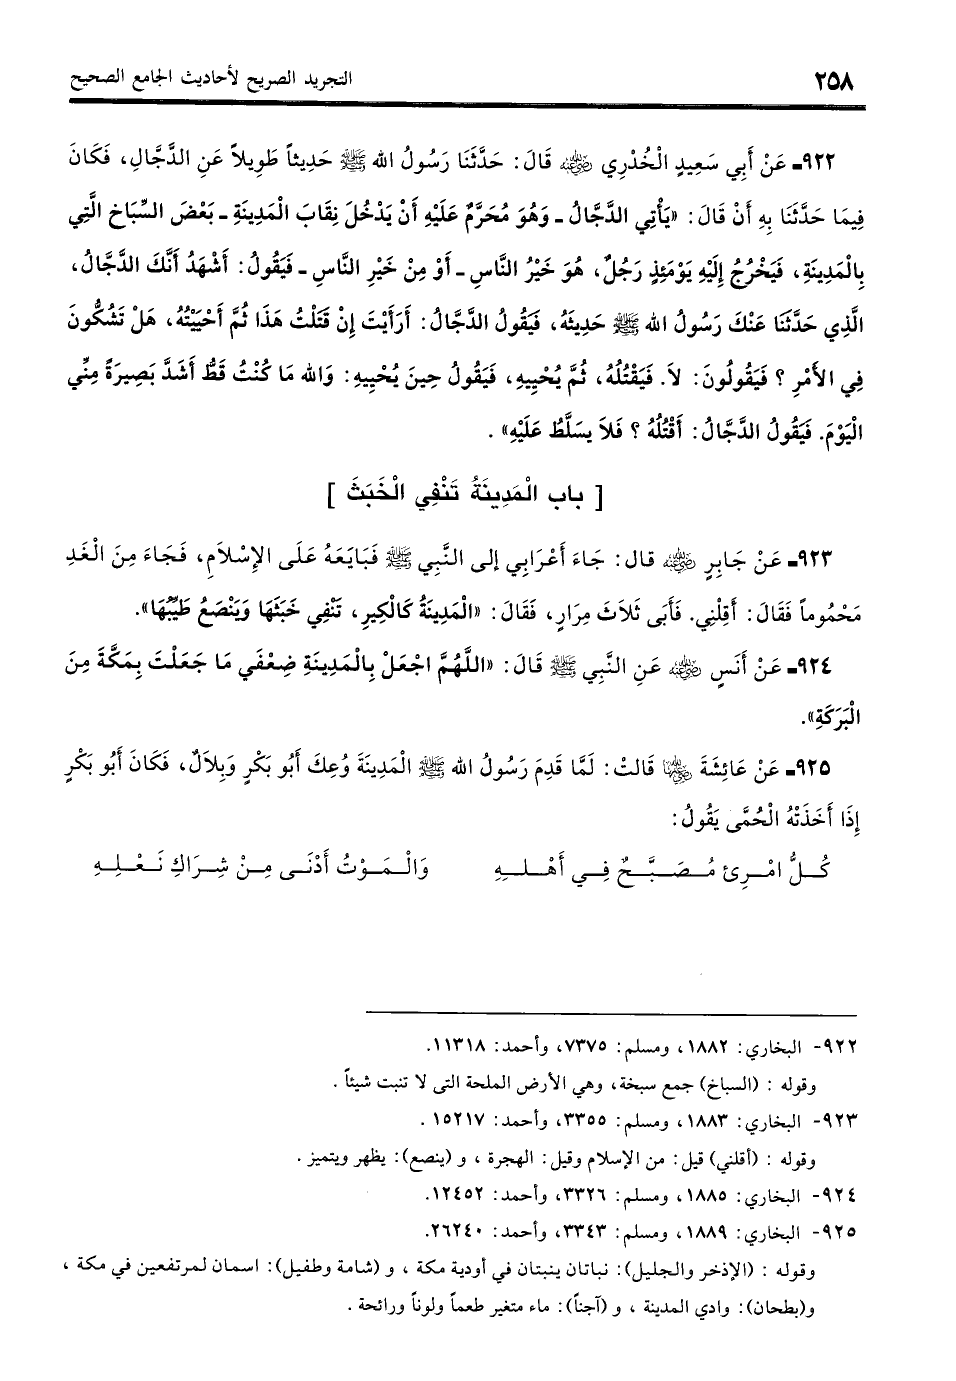 ٢٥٨ التجريد الصريح لأحاديث الجامع الصحيح
٩٢٢ـ عَنْ أَبِي سَعِيدٍ الْخُدْرِي رضي الله عنه قَالَ: حَدَّثَنَا رَسُولُ الله ﷺ حَدِيثاً طَوِيلاً عَنِ الدَّجَّالِ، فَكَانَ
فِيمَا حَدَّثَنَا بِهِ أَنْ قَالَ: «يَأْتِي الدَّجَّالُ ـ وَهُوَ مُحَرَّمٌ عَلَيْهِ أَنْ يَدْخُلَ نِقَابَ الْمَدِينَةِ ـ بَعْضَ السِّبَاخِ الَّتِي
بِالْمَدِينَةِ، فَيَخْرُجُ إِلَيْهِ يَوْمَئِذٍ رَجُلٌ، هُوَ خَيْرُ النَّاسِ ـ أَوْ مِنْ خَيْرِ النَّاسِ ـ فَيَقُولُ: أَشْهَدُ أَنَّكَ الدَّجَّالُ،
الَّذِي حَدَّثَنَا عَنْكَ رَسُولُ الله ﷺ حَدِيثَهُ، فَيَقُولُ الدَّجَّالُ: أَرَأَيْتَ إِنْ قَتَلْتُ هَذَا ثُمَّ أَحْيَيْتُهُ، هَلْ تَشُكُّونَ
فِي الأَمْرِ ؟ فَيَقُولُونَ: لاَ. فَيَقْتُلُهُ، ثُمَّ يُحْيِيهِ، فَيَقُولُ حِينَ يُحْيِيهِ: وَالله مَا كُنْتُ قَطُّ أَشَدَّ بَصِيرَةً مِنِّي
الْيَوْمَ. فَيَقُولُ الدَّجَّالُ: أَقْتُلُهُ ؟ فَلاَ يسَلَّطُ عَلَيْهِ» .
[ باب الْمَدِينَةُ تَنْفِي الْخَبَثَ ]
٩٢٣ـ عَنْ جَابِرٍ رضي الله عنه قال: جَاءَ أَعْرَابِي إلى النَّبِي ﷺ فَبَايَعَهُ عَلَى الإِسْلاَمِ، فَجَاءَ مِنَ الْغَدِ
مَحْمُوماً فَقَالَ: أَقِلْنِي. فَأَبَى ثَلاَثَ مِرَارٍ، فَقَالَ: «الْمَدِينَةُ كَالْكِيرِ، تَنْفِي خَبَثَهَا وَيَنْصَعُ طَيِّبُهَا».
٩٢٤ـ عَنْ أَنَسٍ رضي الله عنه عَنِ النَّبِي ﷺ قَالَ: «اللَّهُمَّ اجْعَلْ بِالْمَدِينَةِ ضِعْفَي مَا جَعَلْتَ بِمَكَّةَ مِنَ
الْبَرَكَةِ».
٩٢٥ـ عَنْ عَائِشَةَ رضي الله عنها قَالتْ: لَمَّا قَدِمَ رَسُولُ الله ﷺ الْمَدِينَةَ وُعِكَ أَبُو بَكْرٍ وَبِلاَلٌ، فَكَانَ أَبُو بَكْرٍ
إِذَا أَخَذَتْهُ الْحُمَّى يَقُولُ:
كُلُّ امْرِئ مُصَبَّحٌ فِي أَهْلِهِ وَالْمَوْتُ أَدْنَى مِنْ شِرَاكِ نَعْلِهِ
٩٢٢- البخاري: ١٨٨٢، ومسلم: ٧٣٧٥، وأحمد: ١١٣١٨.
وقوله : (السباخ) جمع سبخة، وهي الأرض الملحة التى لا تنبت شيئاً .
٩٢٣- البخاري: ١٨٨٣، ومسلم: ٣٣٥٥، وأحمد: ١٥٢١٧ .
وقوله : (أقلني) قيل: من الإسلام وقيل: الهجرة ، و (ينصع): يظهر ويتميز .
٩٢٤- البخاري: ١٨٨٥، ومسلم: ٣٣٢٦، وأحمد: ١٢٤٥٢.
٩٢٥- البخاري: ١٨٨٩، ومسلم: ٣٣٤٣، وأحمد: ٢٦٢٤٠.
وقوله : (الإذخر والجليل): نباتان ينبتان في أودية مكة ، و (شامة وطفيل): اسمان لمرتفعين في مكة ،
و(بطحان): وادي المدينة ، و (آجناً): ماء متغير طعماً ولوناً ورائحة .